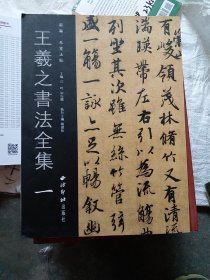 有崇山峻領茂林脩竹又有清流
湍暎帶左右引以為流觴
列坐其次雖無絲竹管弦
一觴一詠亦足以暢敘幽
王羲之書法全集
一
西泠印社出版社